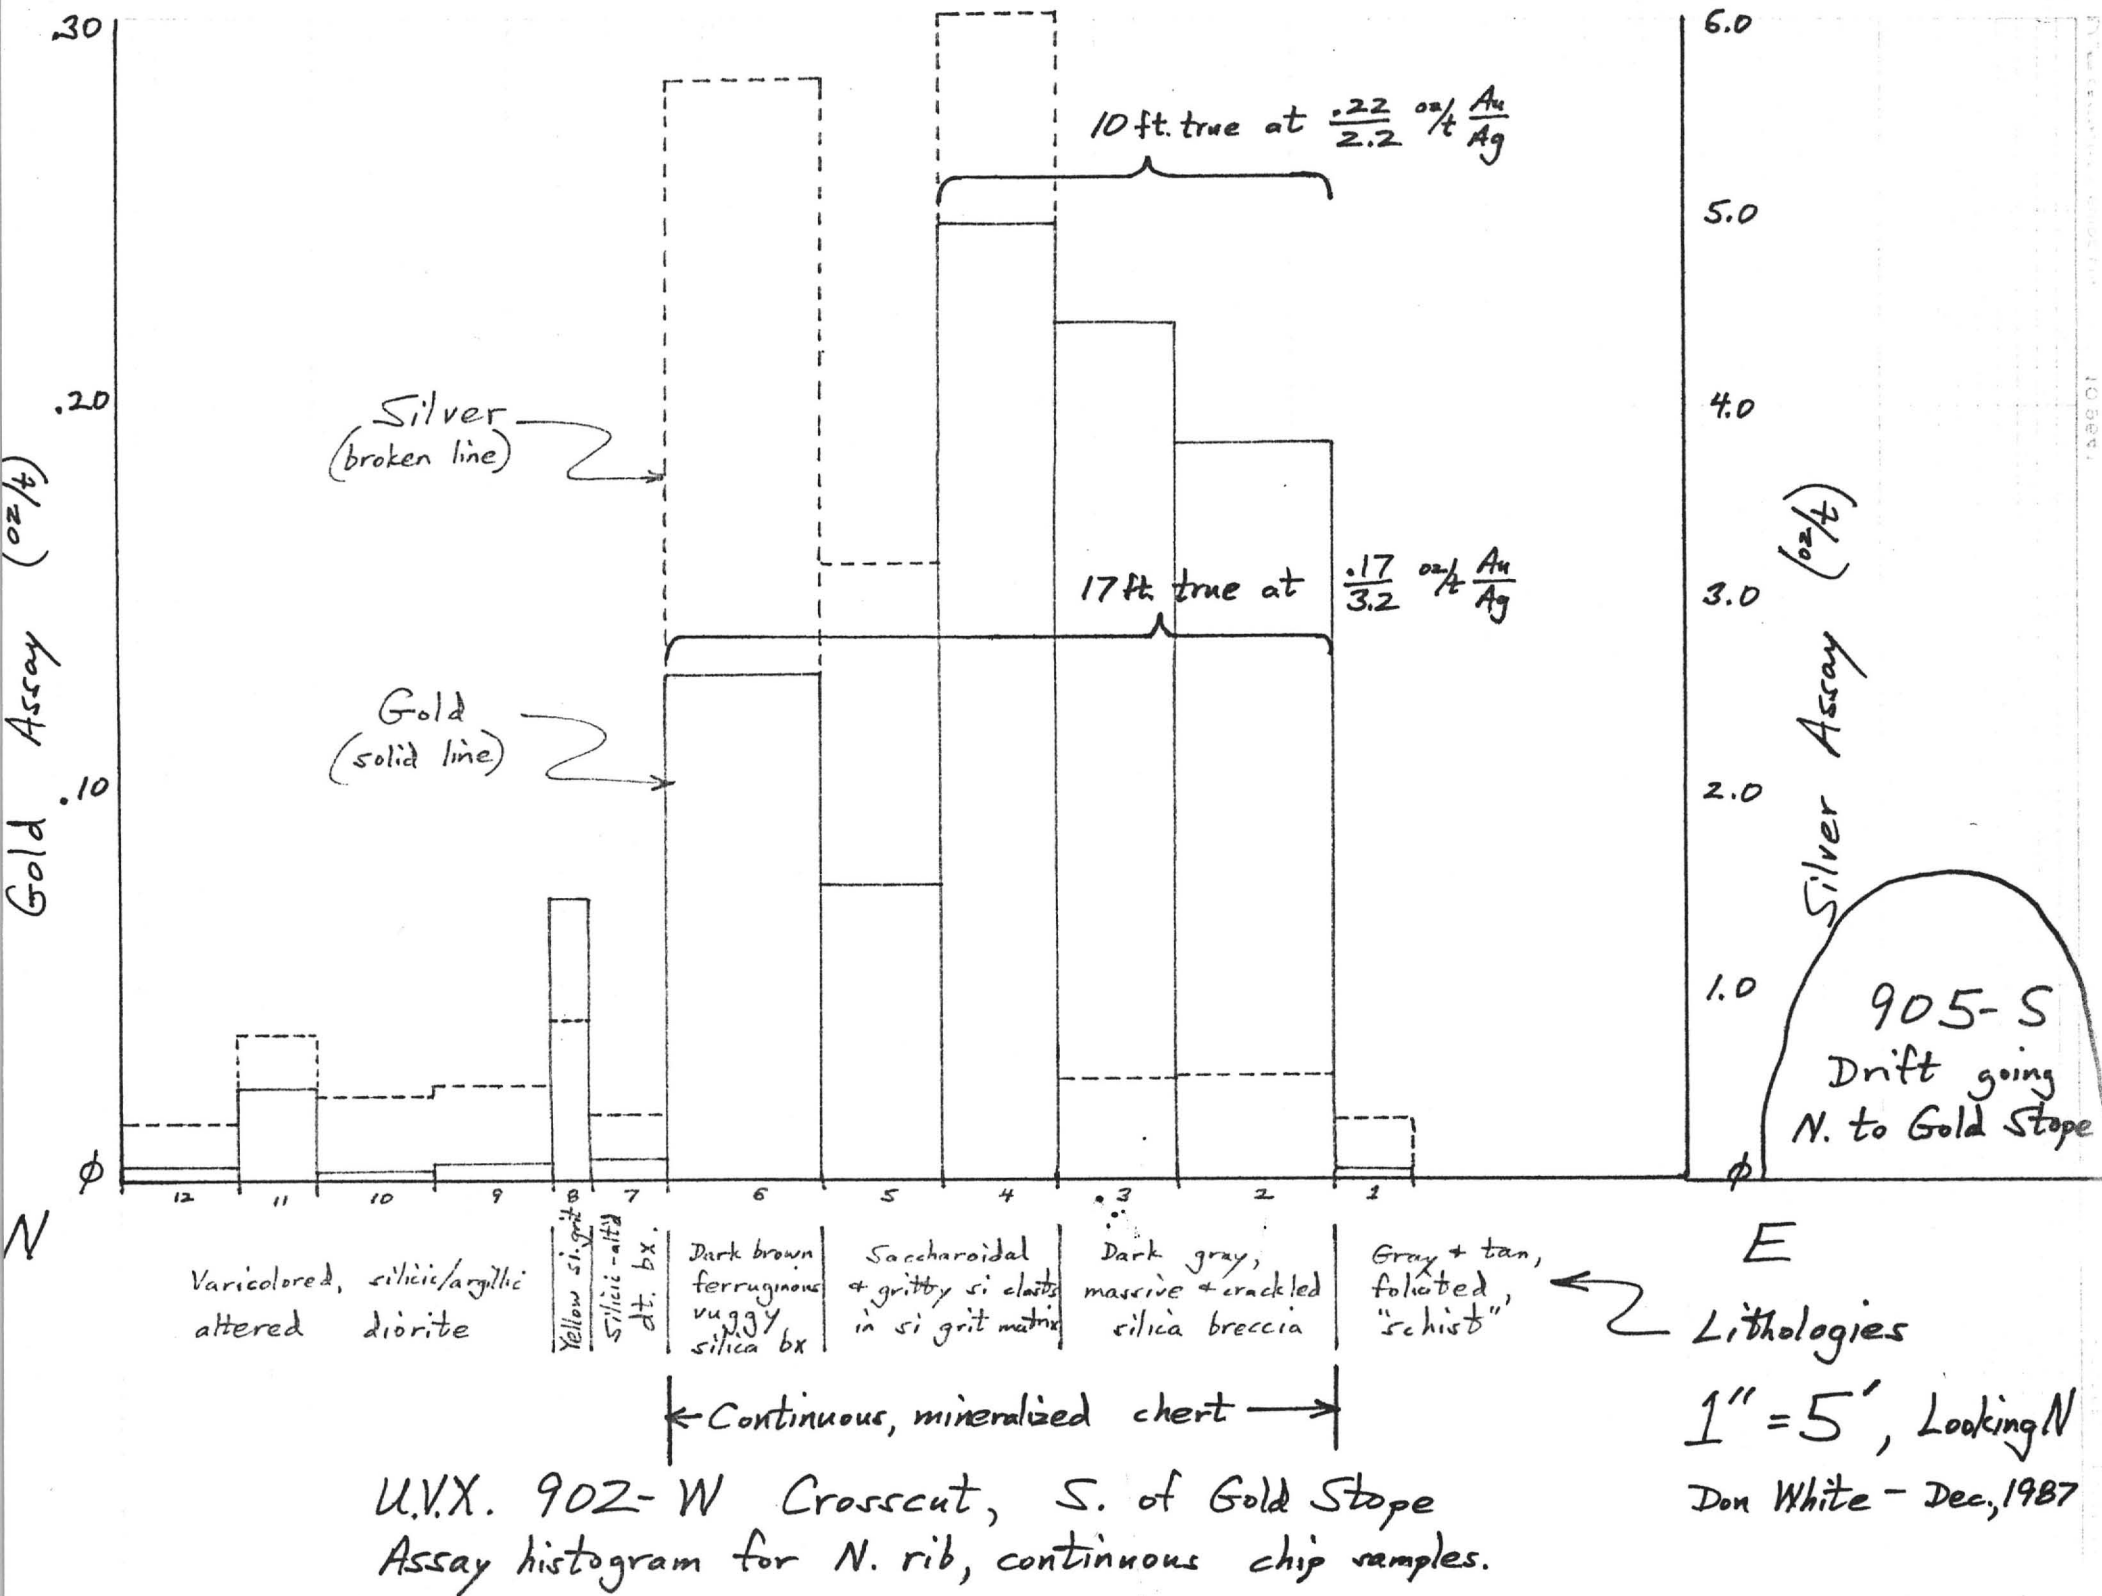 .30
6.0
10 ft. true at .22/2.2 oz/t Au/Ag
5.0
.20
4.0
Silver
(broken line)
Gold Assay (oz/t)
Silver Assay (oz/t)
17 ft true at .17/3.2 oz/t Au/Ag
3.0
Gold
(solid line)
.10
2.0
1.0
905-S
Drift going
N. to Gold Stope
φ
φ
12 11 10 9 8 7 6 5 4 3 2 1
N
E
Varicolored, silicic/argillic
altered diorite
Yellow si. grit
Silicic-alt'd
dt. bx.
Dark brown
ferruginous
vuggy
silica bx
Saccharoidal
+ gritty si clasts
in si grit matrix
Dark gray,
massive + crackled
silica breccia
Gray + tan,
foliated,
"schist"
Lithologies
Continuous, mineralized chert
1" = 5', Looking N
Don White - Dec., 1987
U.V.X. 902-W Crosscut, S. of Gold Stope
Assay histogram for N. rib, continuous chip samples.